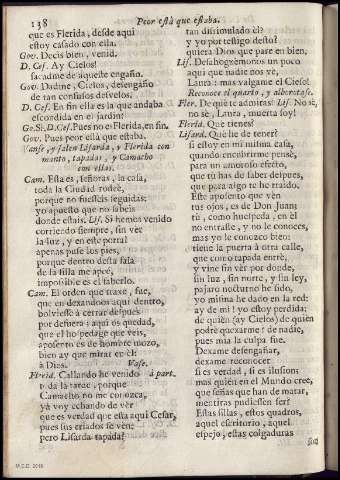 138
Peor está que estaba.
que es Flerida, desde aqui
estoy casado con ella.
Gov. Decis bien, venid.
D. Ces. Ay Cielos!
sacadme de aqueste engaño.
Gov. Dadme, Cielos, desengaño
de tan confusos desvelos.
D. Ces. En fin ella es la que andaba
escondida en el jardin?
Go. Si, D. Ces. Pues no e Flerida, en fin.
Gov. Pues peor está que estaba.
Vanse, y salen Lisarda, y Flerida con
manto, tapadas, y Camacho
con ellas.
Cam. Esta es, señoras, la casa,
toda la Ciudad rodeè,
porque no fuesseis seguidas:
yo apuesto que no sabeis
donde estais. Lis. Si hemos venido
corriendo siempre, sin vèr
la luz, y en este portal
apenas puse los pies,
porque dentro desta sala
de la silla me apeè,
impossible es el saberlo.
Cam. El orden que traxe, fue,
que en dexandoos aqui dentro,
bolviesse à cerrar despues
por defuera: aqui os quedad,
que el hospedage que veis,
aposento es de hombre mozo,
bien ay que mirar en èl:
à Dios. Vase.
Flerid. Callando he venido à part.
toda la tarde, porque
Camacho no me conozca,
yà voy echando de vèr
que es verdad que esta aqui Cesar,
pues sus criados se vèn:
pero Lisarda tapada?
tan dissimulado èl?
y yo por testigo desto?
quiera Dios que pare en bien.
Lis. Desahoguèmonos un poco
aqui que nadie nos vè,
Laura: mas valgame el Cielo!
Reconoce el quarto, y alborotase.
Fler. De què te admiras? Lis. No sè,
no sè, Laura, muerta soy!
Flerid. Què tienes?
Lisard. Què he de tener?
si estoy en mi misma casa,
quando encubrirme pensè,
para un amoroso efecto,
que tù has de saber despues,
que para algo te he traìdo.
Este aposento que vèn
tus ojos, es de Don Juan;
tù, como huespeda, en èl
no entraste, y no le conoces,
mas yo le conozco bien:
tiene la puerta à otra calle,
que con otapada entrè,
y vine sin vèr por donde,
sin luz, sin norte, y sin ley,
pajaro nocturno he sido,
yo misma he dado en la red:
ay de mi! yo estoy perdida:
de quièn (ay Cielos) de quièn
podrè quexarme? de nadie,
pues mia la culpa fue.
Dexame desengañar,
dexame reconocer
si es verdad, si es ilusion;
mas quièn en el Mundo cree,
que señas que han de matar,
mentiras pudiessen ser?
Estas sillas, estos quadros,
aquel escritorio, aquel
espejo, estas colgaduras
M.C.D. 2018